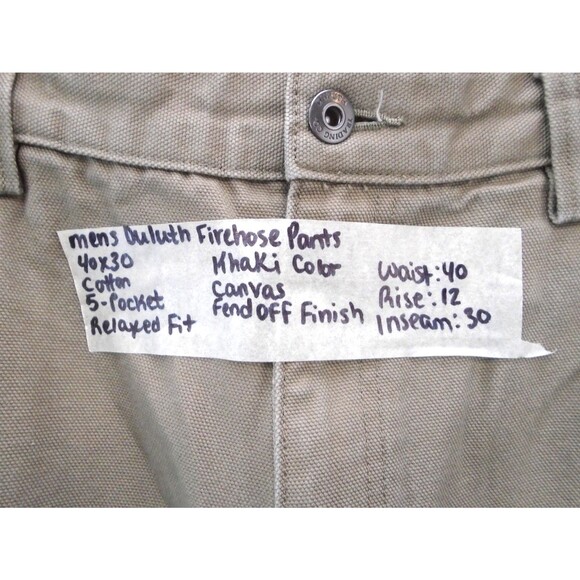 TRADING CO
mens Duluth Firehose Pants
40x30 Khaki Color Waist: 40
Cotton Canvas Rise: 12
5-Pocket Fendoff Finish Inseam: 30
Relaxed Fit